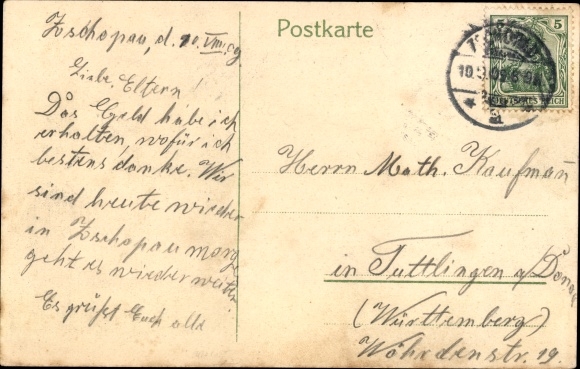 Postkarte
5
DEUTSCHES REICH
Zschopau, d. 10. VIII. 09
Liebe Eltern!
Das Geld habe ich
erhalten, wofür ich
bestens danke. Wir
sind heute wieder
in Zschopau morg
geht es wieder weiter.
Es grüßt Euch alle
Herrn Math. Kaufman
in Tuttlingen a/Donau
(Württemberg)
Wöhrdenstr. 19.